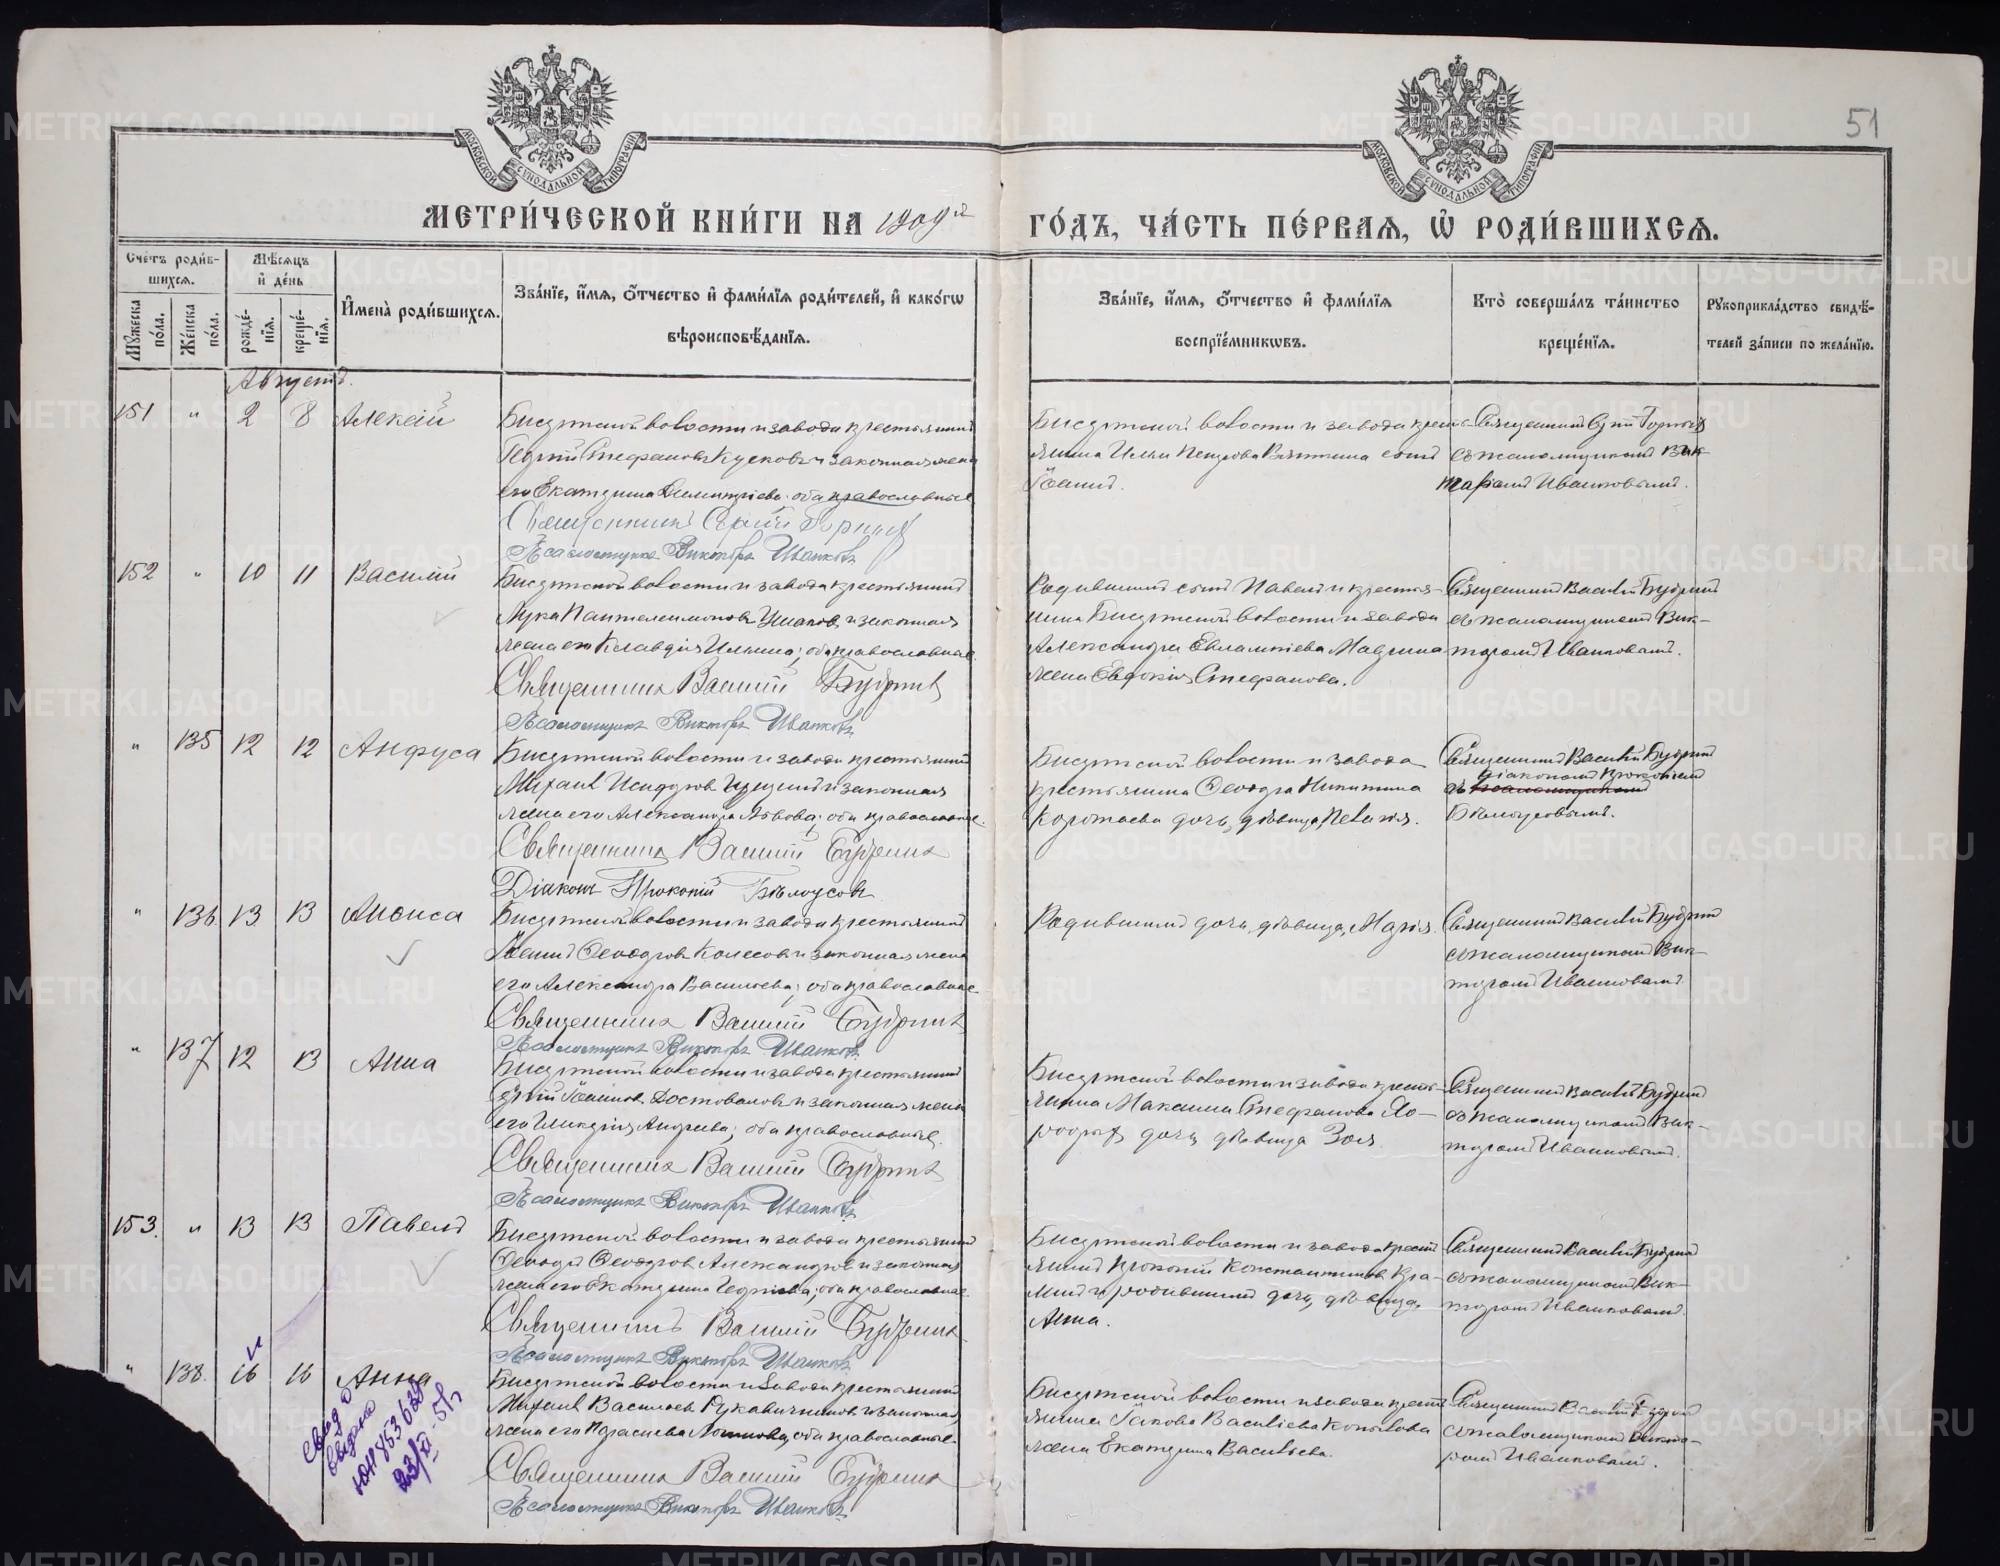 51
МОСКОВСКОЙ СѴНОДАЛЬНОЙ ТИПОГРАФІИ
МОСКОВСКОЙ СѴНОДАЛЬНОЙ ТИПОГРАФІИ
МЕТРИ́ЧЕСКОЙ КНИ́ГИ НА 1909й ГО́ДЪ, ЧА́СТЬ ПЕ́РВАѦ, Ѡ҆ РОДИ́ВШИХСѦ.
Сче́тъ роди́в-
шихсѧ.
Мꙋжеска по́ла.
Же́нска по́ла.
Мѣ́сѧцъ
и҆ де́нь
рожде́-
нїѧ.
креще́-
нїѧ.
И҆мена̀ роди́вшихсѧ.
Зва́нїе, и҆́мѧ, ѻ҆́тчество и҆ фами́лїѧ роди́телей, и҆ како́гѡ
вѣроисповѣ́данїѧ.
Зва́нїе, и҆́мѧ, ѻ҆́тчество и҆ фами́лїѧ
воспрїе́мникѡвъ.
Кто̀ соверша́лъ та́инство
креще́нїѧ.
Рꙋкоприкла́дство свидѣ́-
телей за́писи по жела́нїю.
Августъ.
151 " 2 8 Алексѣй
Бисертской волости и завода крестьянинъ
Георгій Стефановъ Кусковъ и законная жена
его Екатерина Димитріева; оба православные
Священникъ Сергій Горныхъ
Псаломщикъ Викторъ Иванковъ
Бисертской волости и завода кресть-
янина Ильи Петрова Вяткина сынъ
Іоаннъ.
Священникъ Сергій Горныхъ
съ псаломщикомъ Вик-
торомъ Иванковымъ.
152 " 10 11 Василій
Бисертской волости и завода крестьянинъ
Лука Пантелеимоновъ Ушаковъ и законная
жена его Клавдія Ильина; оба православные.
Священникъ Василій Будринъ
Псаломщикъ Викторъ Иванковъ
Родившихъ сынъ Павелъ и крестья-
нина Бисертской волости и завода
Александра Евлампіева Маврина
жена Евдокія Стефанова.
Священникъ Василій Будринъ
съ псаломщикомъ Вик-
торомъ Иванковымъ.
" 135 12 12 Анфуса
Бисертской волости и завода крестьянинъ
Михаилъ Исидоровъ и законная
жена его Александра Львова; оба православные.
Священникъ Василій Будринъ
Діаконъ Прокопій Бѣлоусовъ
Бисертской волости и завода
крестьянина Ѳеодора Никитина
Коротаева дочь, дѣвица, Пелагія.
Священникъ Василій Будринъ
діакономъ Прокопіемъ
съ псаломщикомъ
Бѣлоусовымъ.
" 136. 13 13 Анѳиса
Бисертской волости и завода крестьянинъ
Іоаннъ Ѳеодоровъ Колесовъ и законная жена
его Александра Васильева; оба православные
Священникъ Василій Будринъ
Псаломщикъ Викторъ Иванковъ
Родившихъ дочь, дѣвица, Марія.
Священникъ Василій Будринъ
съ псаломщикомъ Вик-
торомъ Иванковымъ.
" 137 12 13 Анна
Бисертской волости и завода крестьянинъ
Сергій Іоанновъ Достоваловъ и законная жена
его Андреева; оба православные.
Священникъ Василій Будринъ
Псаломщикъ Викторъ Иванковъ.
Бисертской волости и завода кресть-
янина Максима Стефанова
дочь дѣвица Зоя.
Священникъ Василій Будринъ
съ псаломщикомъ Вик-
торомъ Иванковымъ.
153. " 13 13 Павелъ
Бисертской волости и завода крестьянинъ
Ѳеодоръ Ѳеодоровъ Александровъ и законная
жена его Екатерина Георгіева; оба православные.
Священникъ Василій Будринъ
Псаломщикъ Викторъ Иванковъ
Бисертской волости и завода кресть-
янинъ Прокопій Константиновъ
и родившихъ дочь, дѣвица,
Анна.
Священникъ Василій Будринъ
съ псаломщикомъ Вик-
торомъ Иванковымъ.
" 138. 16 16 Анна
Бисертской волости и завода крестьянинъ
Михаилъ Васильевъ Рукавичниковъ и законная
жена его Логинова, оба православные.
Священникъ Василій Будринъ
Псаломщикъ Викторъ Иванковъ
Бисертской волости и завода кресть-
янина Іакова Васильева Копылова
жена Екатерина Васильева.
Священникъ Василій Будринъ
съ псаломщикомъ Викто-
ромъ Иванковымъ.
Свид о
выдано
23/XI-51г
METRIKI.GASO-URAL.RU